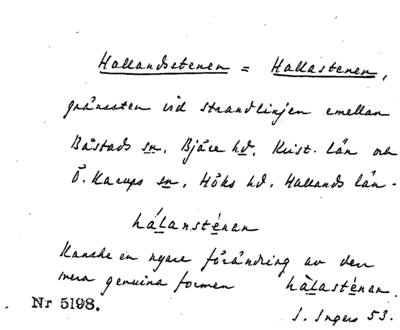 Hallandsstenen = Hallastenen,
gränssten vid strandlinjen emellan
Båstads sn. Bjäre hd. Krist. län och
Ö. Karups sn, Höks hd. Hallands län.
hálansténan
Kanske en nyare förändring av den
mera genuina formen hàlasténan.
Nr 5198.
I. Ingers 53.